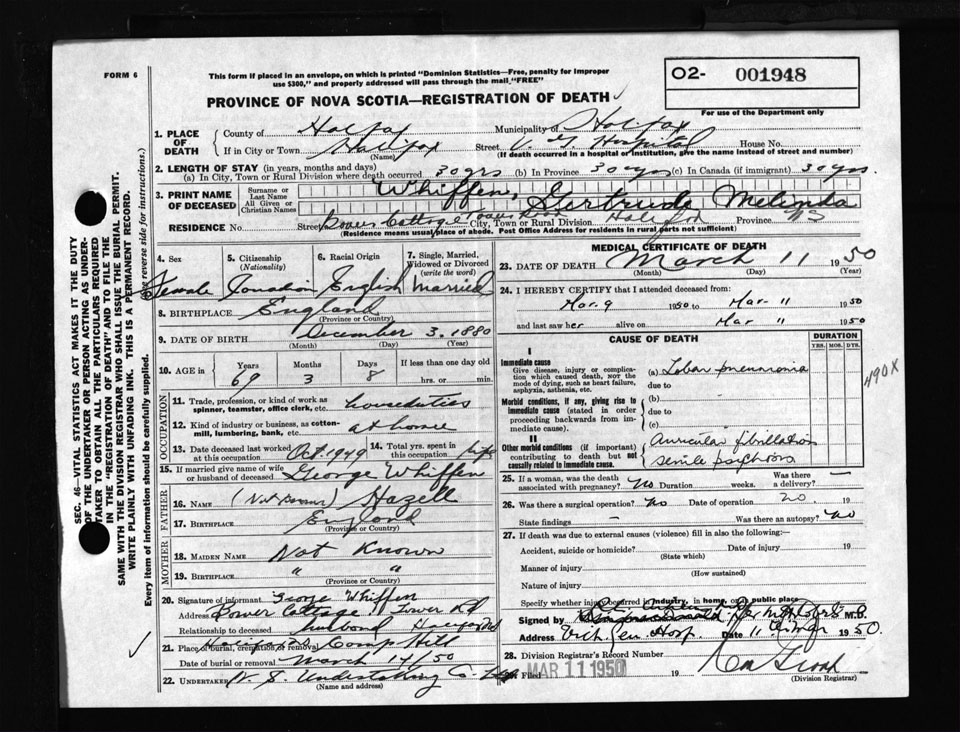 FORM 6
This form if placed in an envelope, on which is printed "Dominion Statistics—Free, penalty for improper
use $300," and properly addressed will pass through the mail "FREE"
O2- 001948
For use of the Department only
PROVINCE OF NOVA SCOTIA—REGISTRATION OF DEATH
SEC. 46—VITAL STATISTICS ACT MAKES IT THE DUTY
OF THE UNDERTAKER OR PERSON ACTING AS UNDER-
TAKER TO OBTAIN ALL THE PARTICULARS REQUIRED
IN THE "REGISTRATION OF DEATH" AND TO FILE THE
SAME WITH THE DIVISION REGISTRAR WHO SHALL ISSUE THE BURIAL PERMIT.
WRITE PLAINLY WITH UNFADING INK. THIS IS A PERMANENT RECORD.
Every item of information should be carefully supplied. (See reverse side for instructions.)
1. PLACE OF DEATH
County of Halifax Municipality of Halifax
If in City or Town Halifax Street V. G. Hospital House No.
(Name) (If death occurred in a hospital or institution, give the name instead of street and number)
2. LENGTH OF STAY (in years, months and days)
(a) In City, Town or Rural Division where death occurred 30 yrs (b) In Province 30 yrs (c) In Canada (if immigrant) 30 yrs.
3. PRINT NAME OF DECEASED
Surname or Last Name Whiffen,
All Given or Christian Names Gertrude Melinda
RESIDENCE No. Street Bower Cottage Tower Road City, Town or Rural Division Halifax Province NS
(Residence means usual place of abode. Post Office Address for residents in rural parts not sufficient)
4. Sex Female
5. Citizenship (Nationality) Canadian
6. Racial Origin English
7. Single, Married, Widowed or Divorced (write the word) Married
8. BIRTHPLACE England
(Province or Country)
9. DATE OF BIRTH December 3, 1880
(Month) (Day) (Year)
10. AGE in Years 69 Months 3 Days 8 If less than one day old
hrs. or min.
OCCUPATION
11. Trade, profession, or kind of work as
spinner, teamster, office clerk, etc. houseduties
12. Kind of industry or business, as cotton-
mill, lumbering, bank, etc. at home
13. Date deceased last worked at this occupation Oct. 1949
14. Total yrs. spent in this occupation life
15. If married give name of wife
or husband of deceased George Whiffen
FATHER
16. Name (Not Known) Hazell
17. Birthplace England
(Province or Country)
MOTHER
18. Maiden Name Not Known
19. Birthplace " "
(Province or Country)
20. Signature of informant George Whiffen
Address Bower Cottage Tower Rd
Relationship to deceased husband Halifax
21. Place of burial, cremation, or removal Halifax Camp Hill
Date of burial or removal March 14/50
22. UNDERTAKER N. S. Undertaking Co.
(Name and address)
MEDICAL CERTIFICATE OF DEATH
23. DATE OF DEATH March 11 1950
(Month) (Day) (Year)
24. I HEREBY CERTIFY that I attended deceased from:
Mar. 9 1950 to Mar- 11 1950
and last saw her alive on Mar 11 1950
CAUSE OF DEATH DURATION
YRS. MOS. DYS.
I
Immediate cause
Give disease, injury or complica-
tion which caused death, NOT the
mode of dying, such as heart failure,
asphyxia, asthenia, etc.
(a) Lobar pneumonia
due to
490X
Morbid conditions, if any, giving rise to
immediate cause (stated in order
proceeding backwards from im-
mediate cause).
(b)
due to
(c)
II
Other morbid conditions (if important)
contributing to death but not
causally related to immediate cause.
Auricular fibrillation
senile psychosis
25. If a woman, was the death
associated with pregnancy? No Duration weeks. Was there a delivery? —
26. Was there a surgical operation? No Date of operation no. 19
State findings — Was there an autopsy? No
27. If death was due to external causes (violence) fill in also the following:
Accident, suicide or homicide? Date of injury 19
(State which)
Manner of injury
(How sustained)
Nature of injury
Specify whether injury occurred in industry, in home, or in public place
Signed by M.D.
Address Vict. Gen. Hosp. Date 11 1950.
28. Division Registrar's Record Number
Filed MAR 11 1950 19
(Division Registrar)